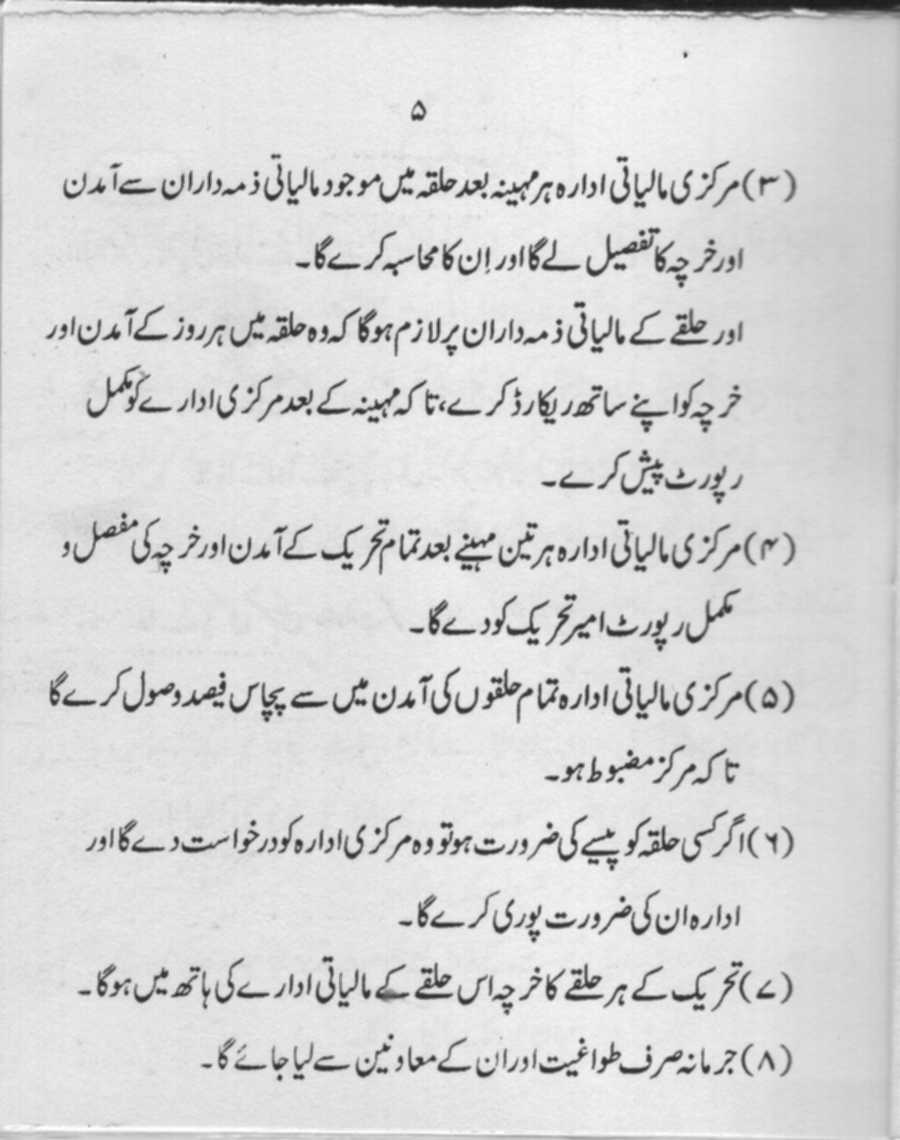 ۵
(۳) مرکزی مالیاتی ادارہ ہر مہینہ بعد حلقہ میں موجود مالیاتی ذمہ داران سے آمدن
اور خرچہ کا تفصیل لے گا اور اِن کا محاسبہ کرے گا۔
اور حلقے کے مالیاتی ذمہ داران پر لازم ہوگا کہ وہ حلقہ میں ہر روز کے آمدن اور
خرچہ کو اپنے ساتھ ریکارڈ کرے، تا کہ مہینہ کے بعد مرکزی ادارے کو مکمل
رپورٹ پیش کرے۔
(۴) مرکزی مالیاتی ادارہ ہر تین مہینے بعد تمام تحریک کے آمدن اور خرچہ کی مفصل و
مکمل رپورٹ امیر تحریک کو دے گا۔
(۵) مرکزی مالیاتی ادارہ تمام حلقوں کی آمدن میں سے پچاس فیصد وصول کرے گا
تا کہ مرکز مضبوط ہو۔
(۶) اگر کسی حلقہ کو پیسے کی ضرورت ہو تو وہ مرکزی ادارہ کو درخواست دے گا اور
ادارہ ان کی ضرورت پوری کرے گا۔
(۷) تحریک کے ہر حلقے کا خرچہ اس حلقے کے مالیاتی ادارے کی ہاتھ میں ہوگا۔
(۸) جرمانہ صرف طواغیت اور ان کے معاونین سے لیا جائے گا۔